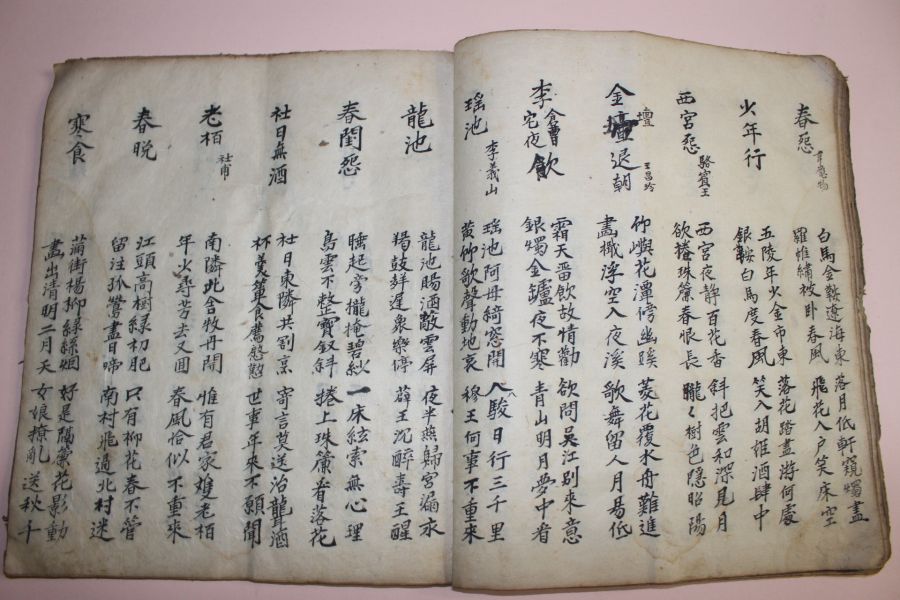 春怨
白馬金鞍遼海東
羅帷繡被卧春風
落月低軒窺燭盡
飛花入戶笑床空
少年行
五陵年少金市東
銀鞍白馬度春風
落花踏盡游何處
笑入胡姬酒肆中
西宮怨
駱賓王
西宮夜静百花香
欲捲珠簾春恨長
斜把雲和深見月
朧〻樹色隱昭陽
金壇退朝
王昌齡
仰嶼花潭傍幽蹊
畵檝浮空入夜溪
菱花覆水舟難進
歌舞留人月易低
李倉曹宅夜飲
霜天畱飮故情勸
銀燭金鑪夜不寒
欲問吳江別來意
青山明月夢中看
瑶池
李義山
瑶池阿母綺窓開
黄竹歌聲動地哀
八駿日行三千里
穆王何事不重來
龍池
龍池賜酒敞雲屏
羯鼓聲遲衆樂停
夜半燕歸宮漏水
薜王沉醉壽王醒
春閨怨
睡起旁攏掩碧紗
鳥雲不整寶釵斜
一床絃索無心理
捲上珠簾看落花
社日無酒
社日東隣共割烹
杯羹簞食薦慇懃
寄言莫送治聾酒
世事年來不願聞
老栢
杜甫
南隣北舍牧丹開
年少尋芳去又囬
惟有君家雙老栢
春風恰似不重來
春晩
江頭高樹綠初肥
留注孤鶯盡日啼
只有柳花春不管
南村飛過北村迷
寒食
滿街楊柳綠絲烟
畵出清明二月天
好是隔簾花影動
女娘撩亂送秋千